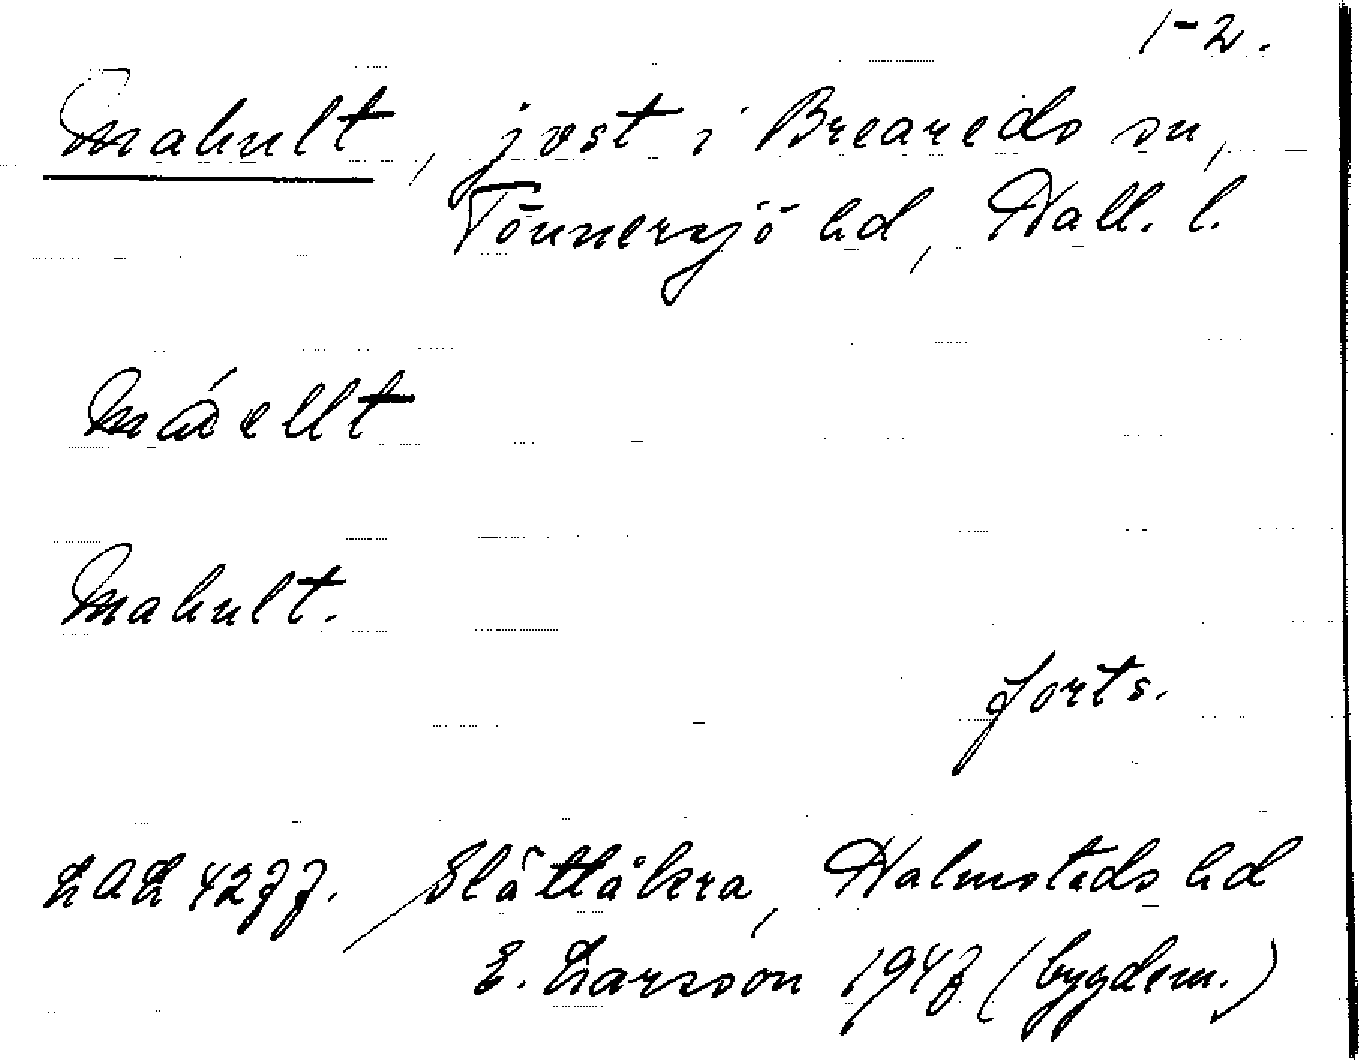 1-2.
Mahult, jvst i Breareds sn,
Tönnersjö hd, Hall. l.
Mahult.
forts.
LAL 4277. Slättåkra, Halmstads hd
E. Larsson 1947 (bygdem.)